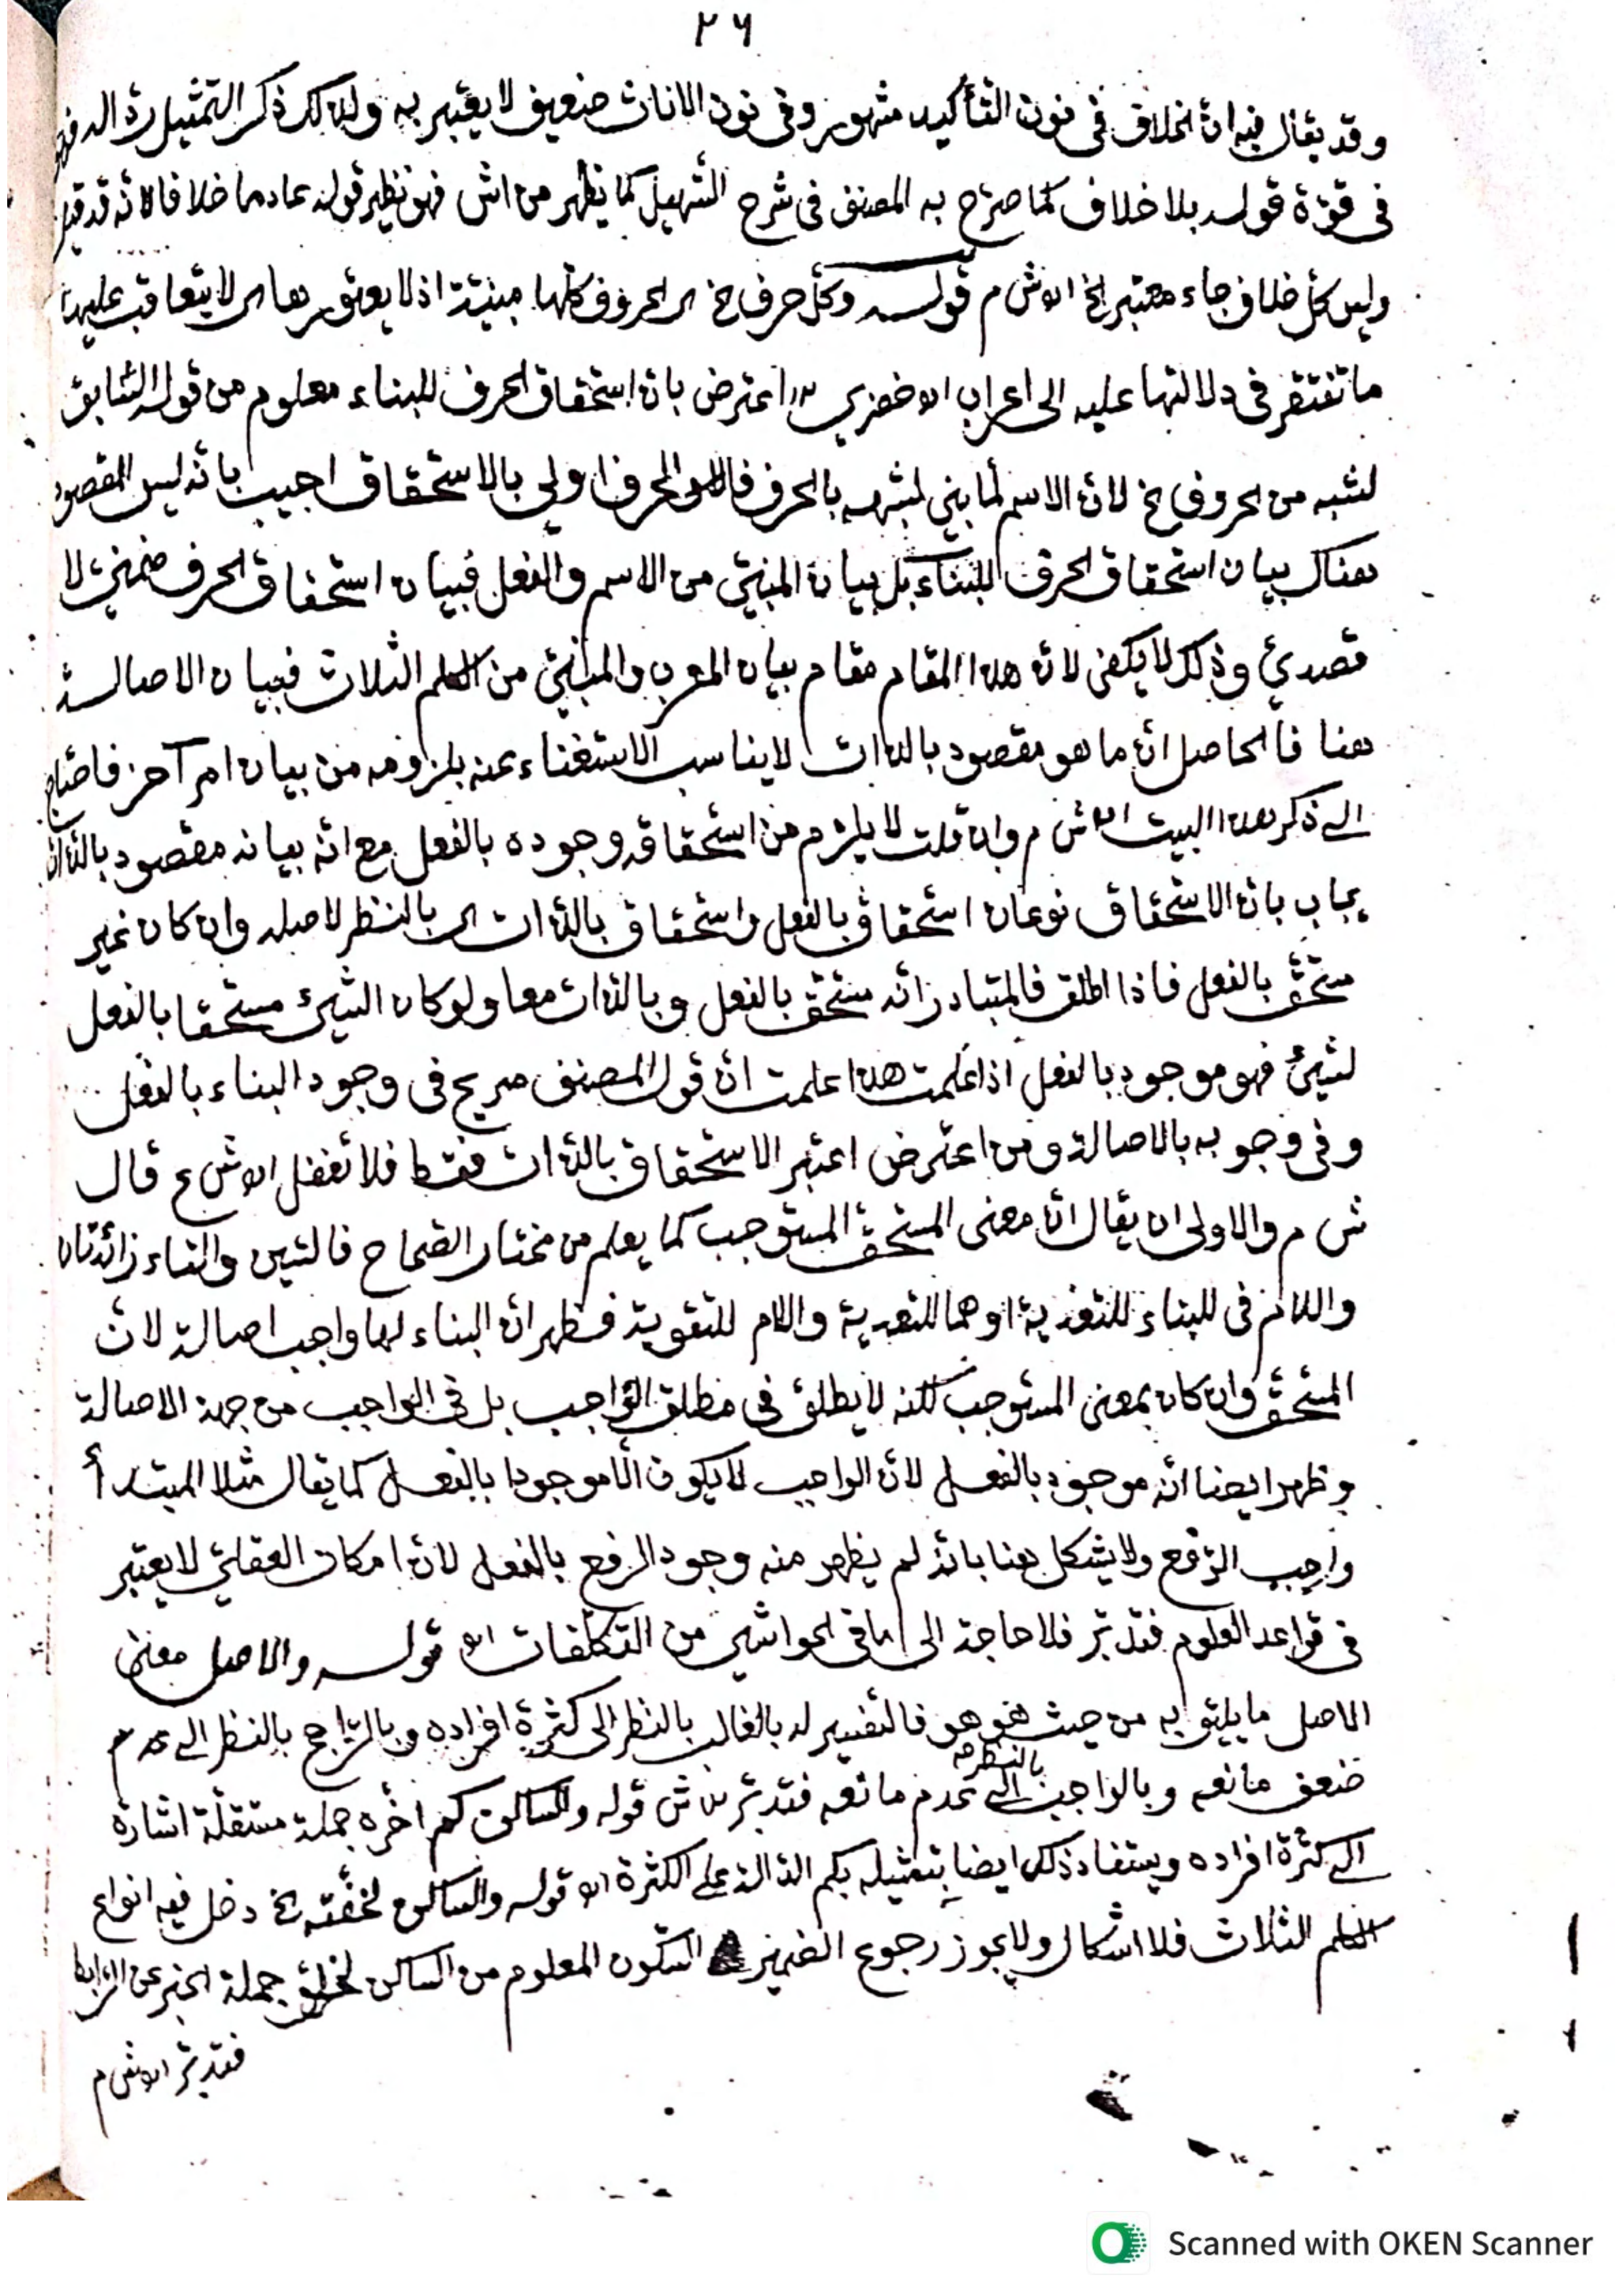 ٢٦
وقد يقال فيه ان الخلاف في نون التأكيد مشهور وفي نون الاناث ضعيف لا يعتبر به ولذلك ذكر التمثيل
في قوة قوله بلا خلاف كما صرّح به المصنف في شرح التسهيل كما يظهر من اش فهو نظير قوله عادما خلافا لانه قد
وليس كل خلاف جاء معتبر الخ اه ش م قوله وكل حرف خ اى الحروف كلها مبنيّة اذ لا يعتور بها اى لا يتعاقب عليها
ما تفتقر في دلالتها عليه الى اعراب اه خضري اعترض بان استحقاق الحرف للبناء معلوم من قوله السّابق
لشبه من الحروف خ لان الاسم لما بني لشبهه بالحرف فالحرف اولى بالاستحقاق اجيب بانّه ليس المقصود
هناك بيان استحقاق الحرف للبناء بل بيان المبنيّ من الاسم والفعل فبيان استحقاق الحرف ضمنيّ لا
قصديّ وذلك لا يكفى لانّ هذا المقام مقام بيان المعرب والمبنيّ من الكلم الثلاث فبيان الاصالة
هنا فالحاصل انّ ما هو مقصود بالذات لا يناسب الاستغناء عنه بلزومه من بيان امر آخر فاحتاج
الى ذكر هذا البيت اه ش م وان قلت لا يلزم من استحقاقه وجوده بالفعل مع انّه بيانه مقصود بالذات
يجاب بان الاستحقاق نوعان استحقاق بالفعل واستحقاق بالذات اى بالنظر لاصله وان كان غير
مستحقّ بالفعل فاذا اطلق فالمتبادر انّه مستحق بالفعل وبالذات معا ولو كان الشيئ مستحقا بالفعل
لشيئ فهو موجود بالفعل اذا علمت هذا علمت انّ قول المصنف صريح في وجود البناء بالفعل
وفي وجوبه بالاصالة ومن اعترض اعتبر الاستحقاق بالذات فقط فلا تغفل اه ش ع قال
ش م والاولى ان يقال انّ معنى المستحق المستوجب كما يعلم من مختار الصّحاح فالسّين والتاء زائدتان
واللام في للبناء للتعدية او هما للتعدية واللام للتقوية فظهر انّ البناء لها واجب اصالة لانّ
المستحقّ وان كان بمعنى المستوجب لكنّه لا يطلق في مطلق الواجب بل في الواجب من جهة الاصالة
وظهر ايضا انّه موجود بالفعل لانّ الواجب لا يكون الّا موجودا بالفعل كما يقال مثلا المبتدأ
واجب الرّفع ولا يشكل هنا بانّه لم يظهر منه وجود الرفع بالفعل لانّ امكان العقليّ لا يعتبر
في قواعد العلوم فتدبّر فلا حاجة الى ما في الحواشي من التكلّفات اه قوله والاصل معنى
الاصل ما يليق به من حيث هو هو فالتفسير له بالغالب بالنظر الى كثرة افراده وبالرّاجح بالنظر الى عدم
ضعف مانعه وبالواجب بالنظر الى عدم مانعه فتدبّر ش قوله والساكن كم اخّره جملة مستقلّة اشارة
الى كثرة افراده ويستفاد ذلك ايضا بتمثيله بكم الدّالّة على الكثرة اه قوله والساكن لخفّته خ دخل فيه انواع
الكلم الثلاث فلا اشكال ولا يجوز رجوع الضمير السّكون المعلوم من الساكن لخلوّ جملة الخبر عن الرّابط
فتدبّر اه ش م
Scanned with OKEN Scanner